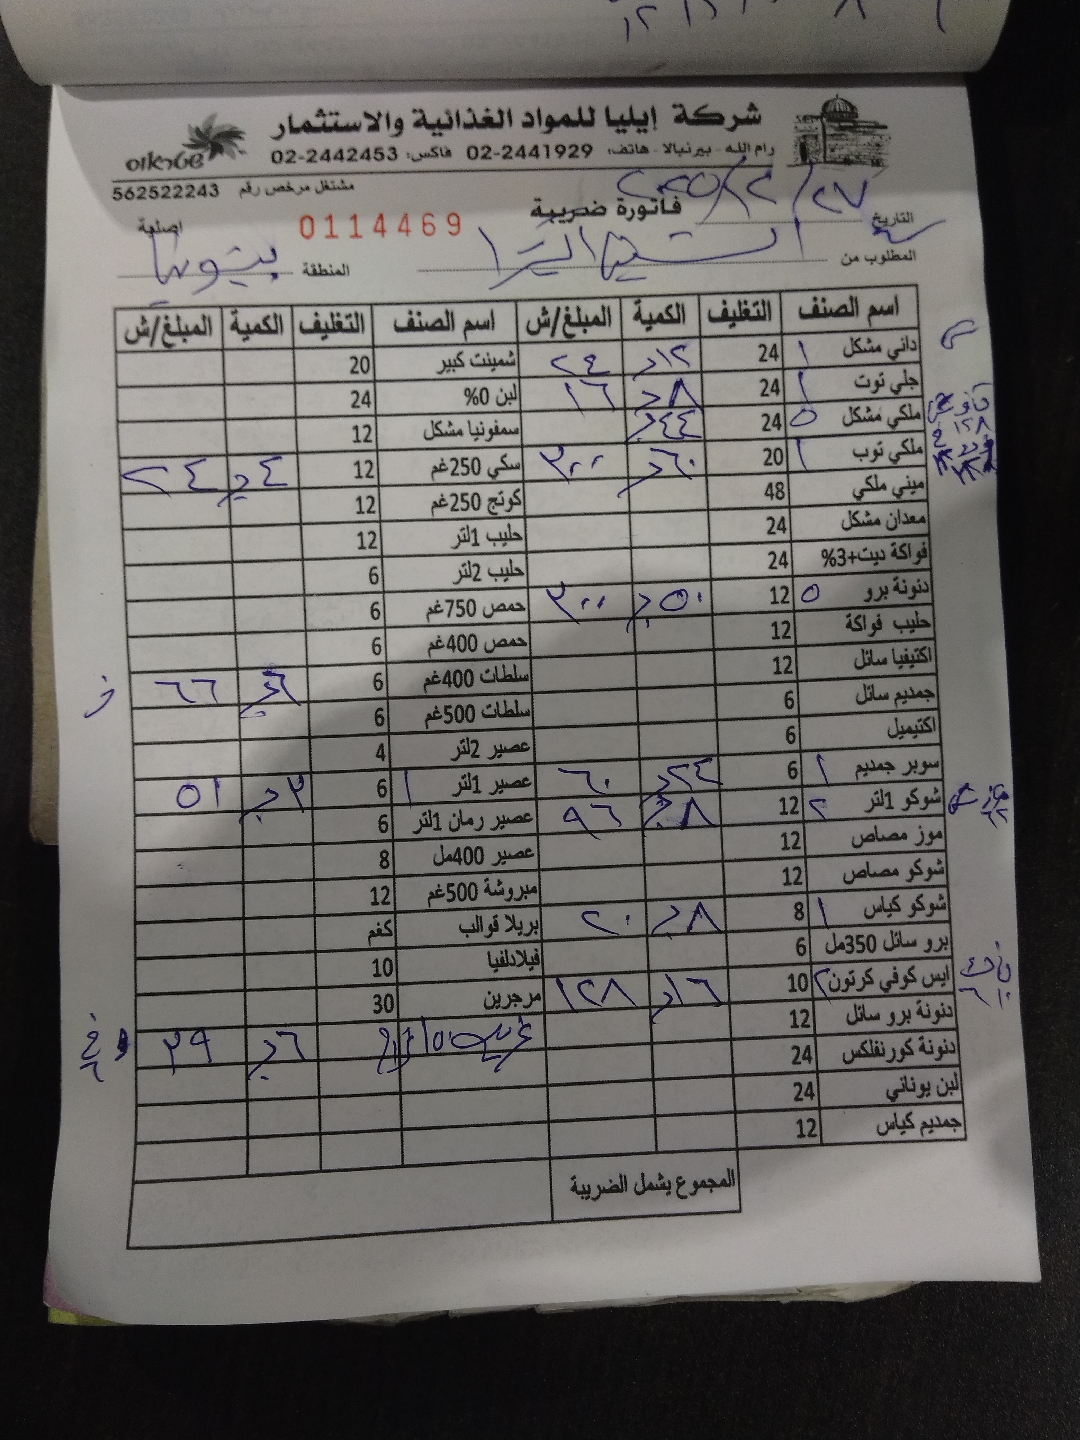 شركة إيليا للمواد الغذائية والاستثمار
رام الله - بيرنبالا - هاتف: 02-2441929 فاكس: 02-2442453
مشتغل مرخص رقم 562522243
التاريخ ٢٧/٢/٢٠٢٥
فاتورة ضريبة
0114469
اصلية
المطلوب من
المنطقة بيتونيا
اسم الصنف التغليف الكمية المبلغ/ش اسم الصنف التغليف الكمية المبلغ/ش
داني مشكل ١ 24 ١٢ ٢٤ شمينت كبير 20
جلي توت ١ 24 ٨ ١٦ لبن 0% 24
ملكي مشكل ٥ 24 ٤٤ سمفونيا مشكل 12
ملكي توب ١ 20 ٦٠ ٣٠٠ سكي 250غم 12 ٤ ٢٤
ميني ملكي 48 كوتج 250غم 12
معدان مشكل 24 حليب 1لتر 12
فواكة ديت+3% 24 حليب 2لتر 6
دنونة برو ٥ 12 ٥٠ ٣٠٠ حمص 750غم 6
حليب فواكة 12 حمص 400غم 6
اكتيفيا سائل 12 سلطات 400غم 6 ٦ ٦٦
جمديم سائل 6 سلطات 500غم 6
اكتيميل 6 عصير 2لتر 4
سوبر جمديم ١ 6 ٢٤ ٦٠ عصير 1لتر ١ 6 ٣ ٥١
شوكو 1لتر ٢ 12 ٨ ٩٦ عصير رمان 1لتر 6
موز مصاص 12 عصير 400مل 8
شوكو مصاص 12 مبروشة 500غم 12
شوكو كياس ١ 8 ٨ ٢٠ بريلا قوالب كغم
برو سائل 350مل 6 فيلادلفيا 10
ايس كوفي كرتون ٢ 10 ١٦ ١٢٨ مرجرين 30
دنونة برو سائل 12 ٦ ٣٩
دنونة كورنفلكس 24
لبن يوناني 24
جمديم كياس 12
المجموع يشمل الضريبة